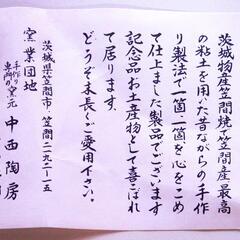 茨城物産笠間焼は笠間産最高
の粘土を用いた昔ながらの手作
り製法で一箇一箇を心をこめ
て仕上ました製品でございます
記念品お土産物として喜ばれ
て居ります。
どうぞ末長くご愛用下さい。
茨城県笠間市笠間二一九二ー一五
窯業団地
手作り専門の窯元
中西陶房